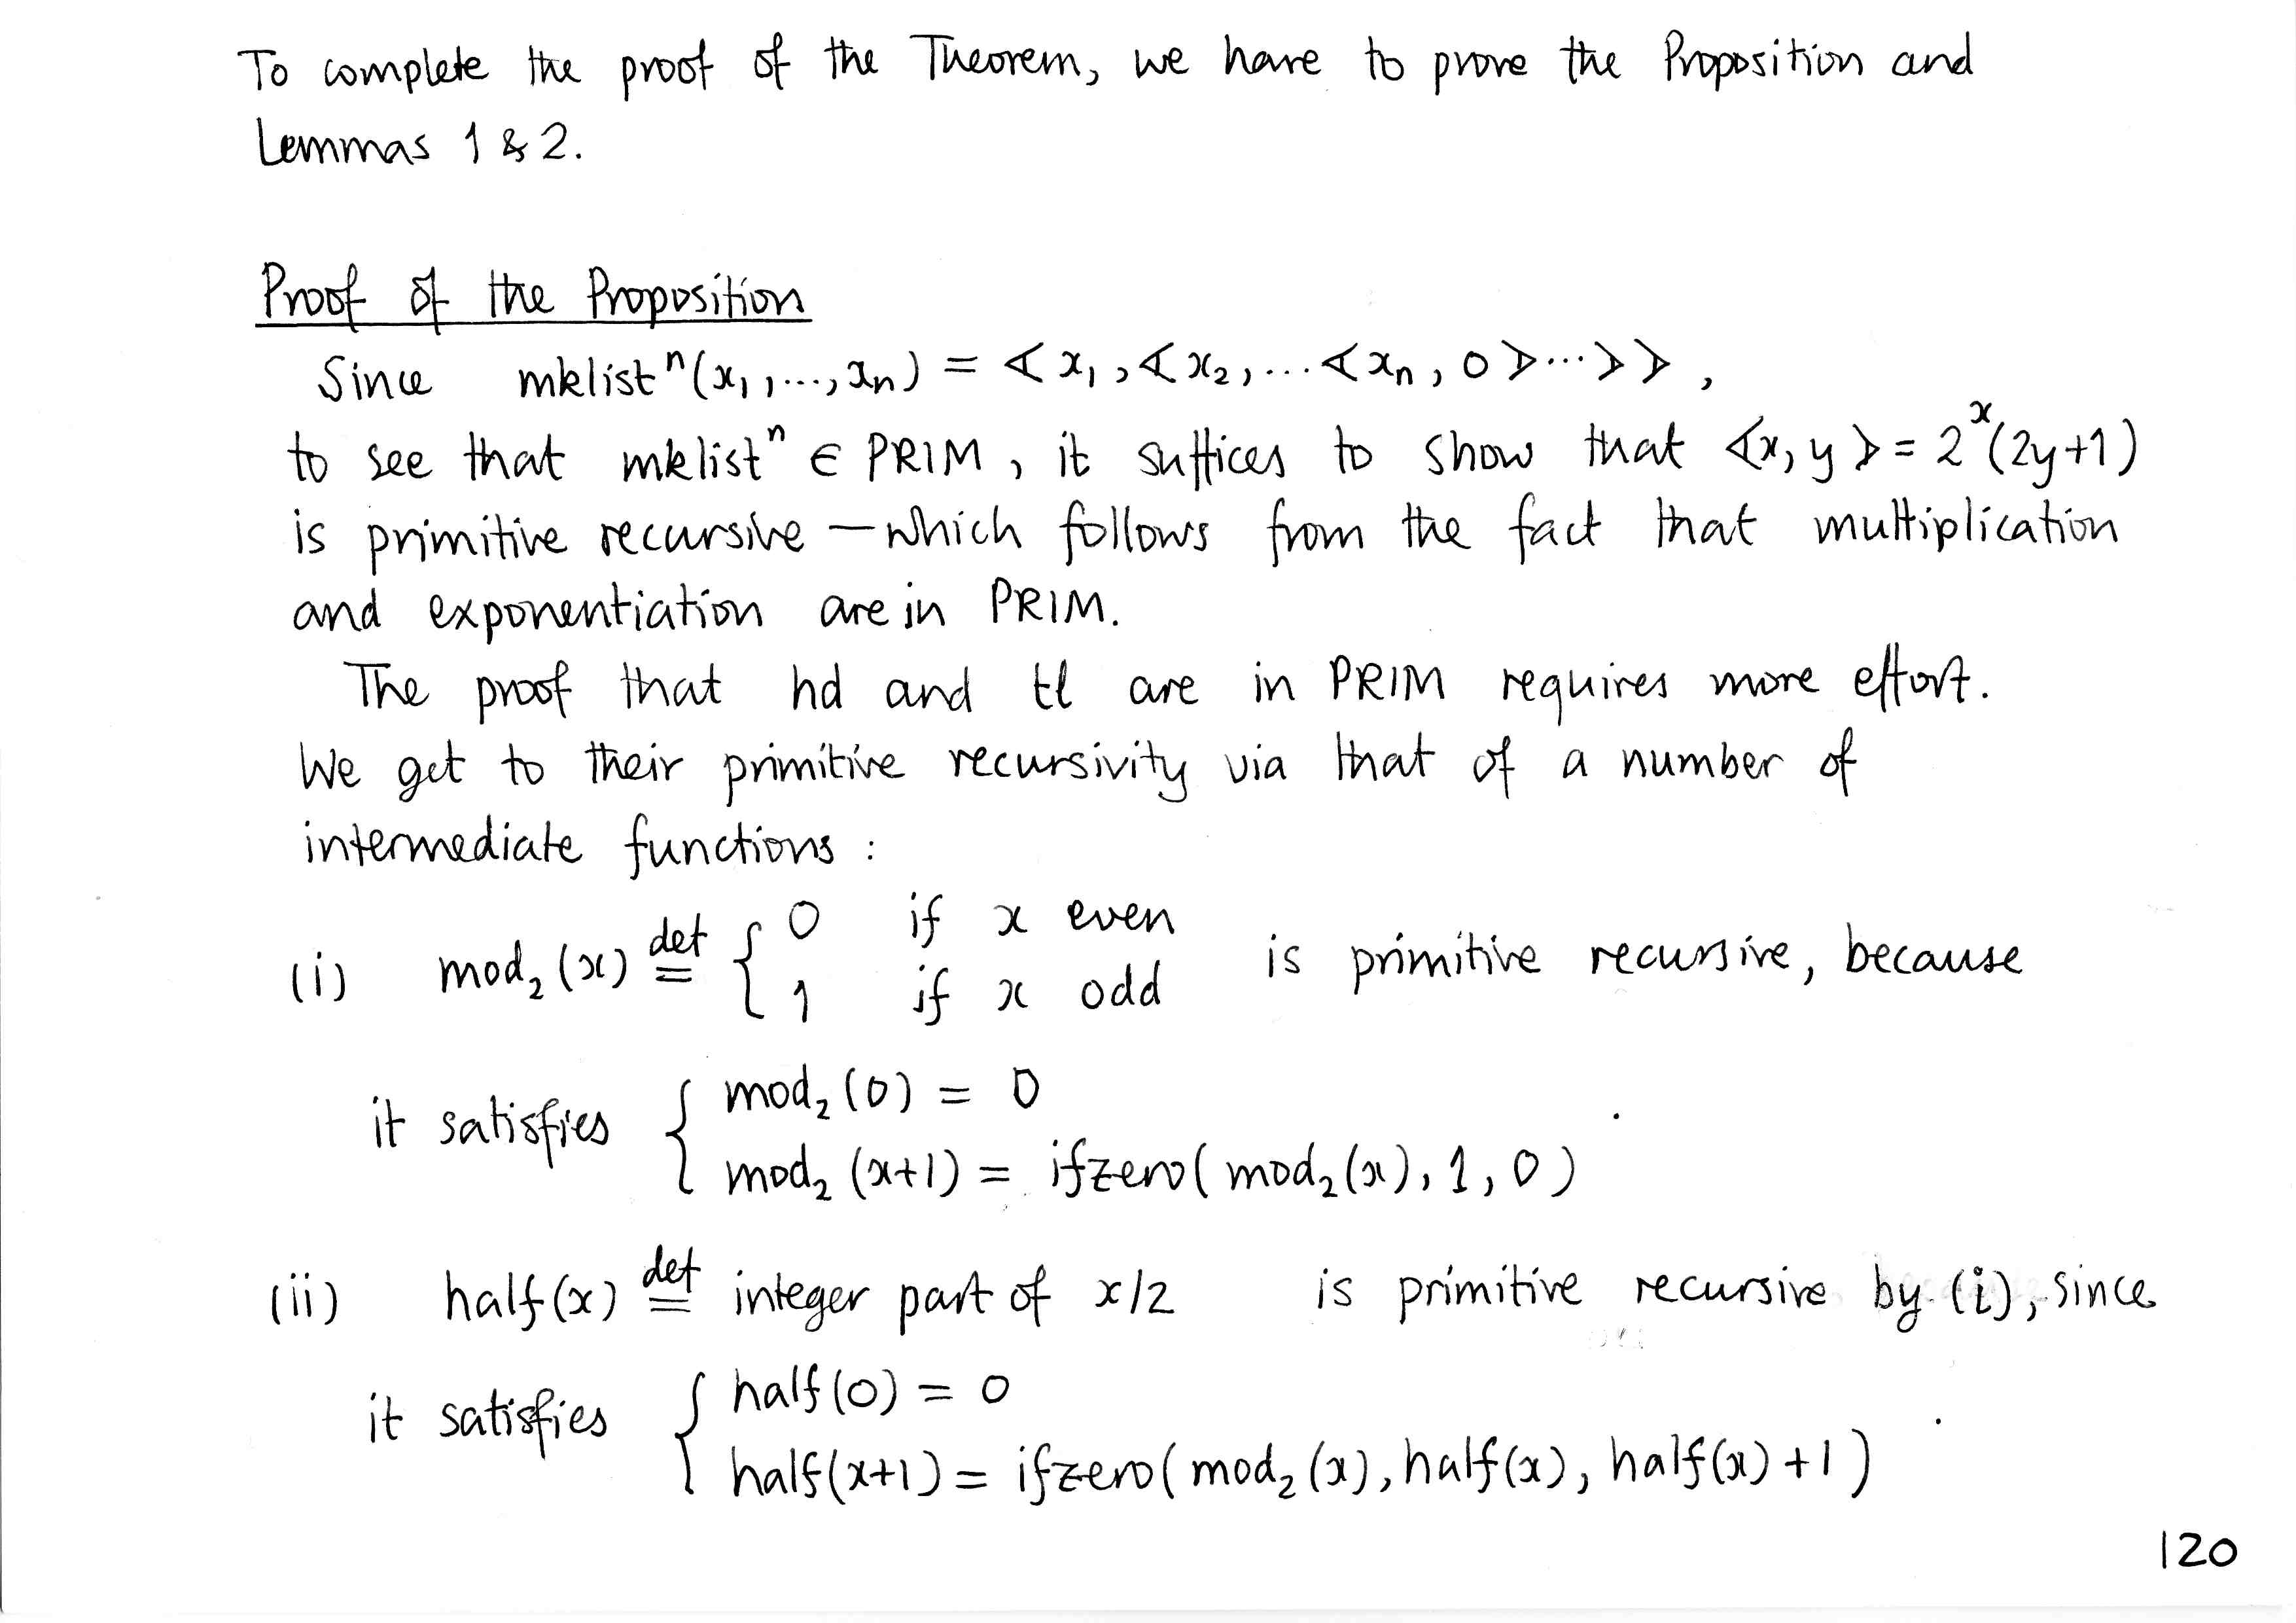 To complete the proof of the Theorem, we have to prove the Proposition and
Lemmas 1 & 2.
Proof of the Proposition
Since mklistⁿ(x₁,...,xₙ) = ⦉x₁,⦉x₂,...⦉xₙ,0⦊...⦊⦊,
to see that mklistⁿ ∈ PRIM, it suffices to show that ⦉x,y⦊ = 2ˣ(2y+1)
is primitive recursive — which follows from the fact that multiplication
and exponentiation are in PRIM.
The proof that hd and tl are in PRIM requires more effort.
We get to their primitive recursivity via that of a number of
intermediate functions :
(i) mod₂(x) ≝ { 0 if x even
1 if x odd is primitive recursive, because
it satisfies { mod₂(0) = 0
mod₂(x+1) = ifzero(mod₂(x), 1, 0) .
(ii) half(x) ≝ integer part of x/2 is primitive recursive by (i), since
it satisfies { half(0) = 0
half(x+1) = ifzero(mod₂(x), half(x), half(x)+1) .
120